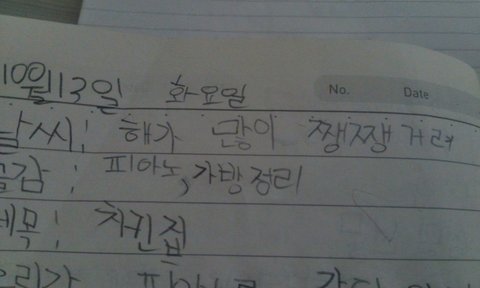 10월 13일 화요일
No. Date
날씨: 해가 많이 쨍쨍거려
글감: 피아노, 가방정리
제목: 치킨집
우리가